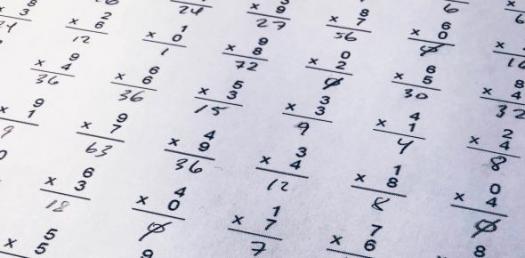 24
× 9
27
8
× 7
56
6
× 0
0
6
× 3
2
× 6
12
1
× 0
1
9
× 8
72
0
× 2
0
6
× 5
30
8
× 4
32
9
× 4
36
6
× 6
36
5
× 3
15
3
× 3
9
4
× 1
4
2
× 4
8
9
× 1
9
9
× 7
63
4
× 9
36
3
× 4
12
1
× 8
8
0
× 4
0
6
× 3
18
4
× 0
0
1
× 7
7
7
× 6
8
5
× 5
9